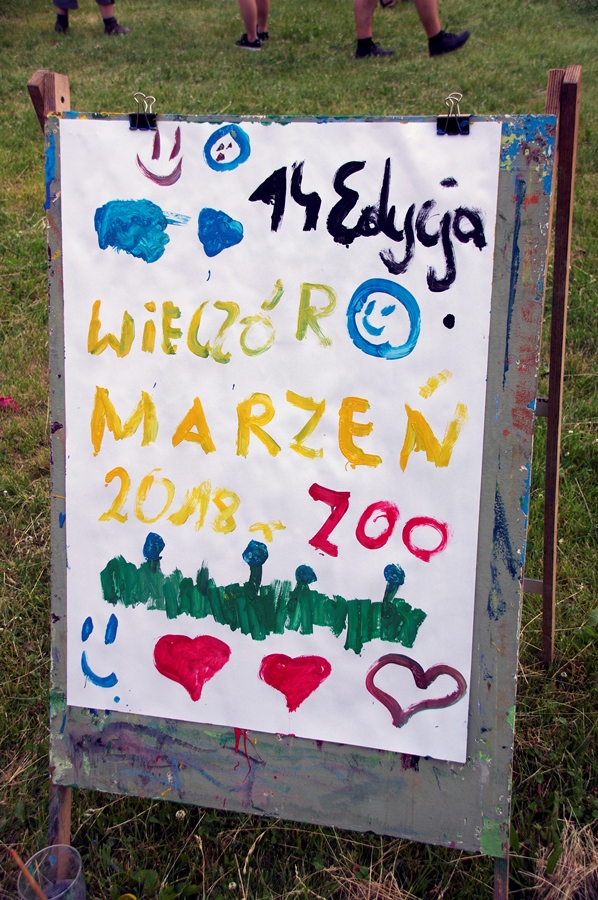 14 Edycja
WIECZÓR
MARZEŃ
2018r ZOO